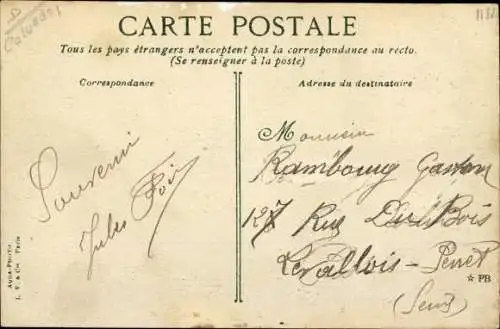 Calvados
1182
CARTE POSTALE
Tous les pays étrangers n'acceptent pas la correspondance au recto.
(Se renseigner à la poste)
Correspondance
Adresse du destinataire
Souvenir
Jules
Monsieur
Rambourg Gaston
127 Rue Du Bois
Levallois-Perret
(Seine)
Aqua-Photo
L. V. & Cie Paris
☆ PB